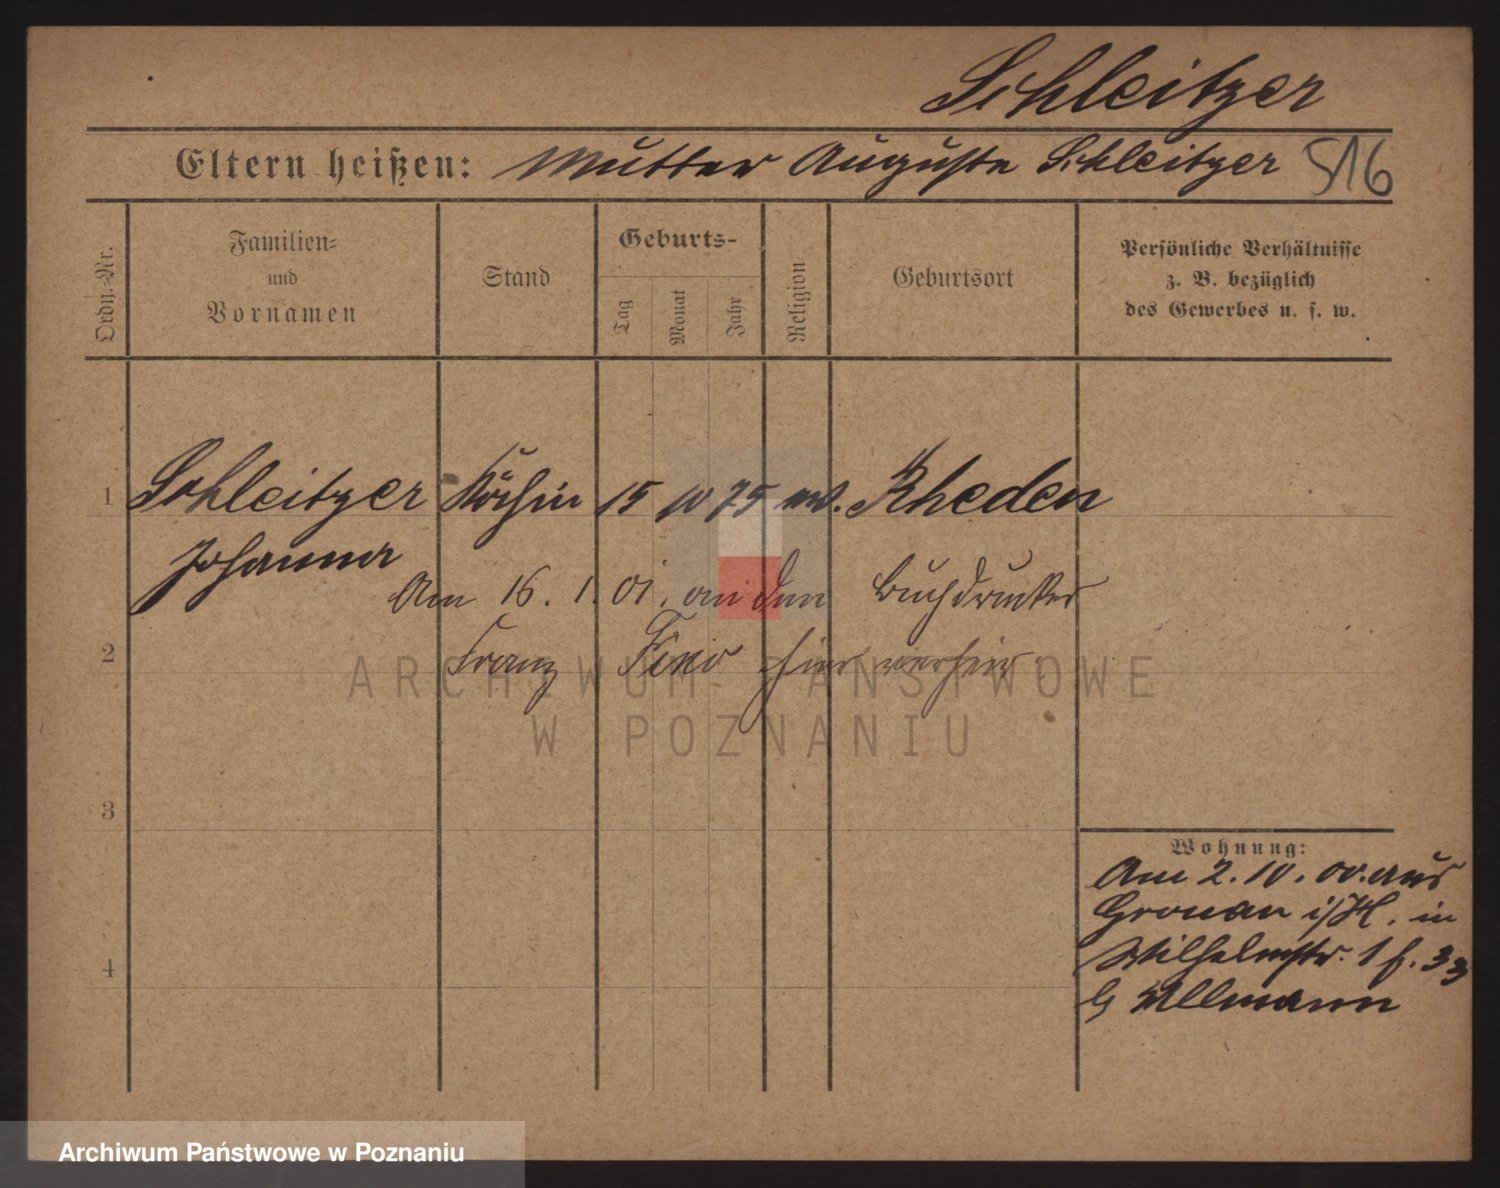 Schleitzer
Eltern heißen: Mutter Auguste Schleitzer 516
Ordn.-Nr.
Familien-
und
Vornamen
Stand
Geburts-
Tag
Monat
Jahr
Religion
Geburtsort
Persönliche Verhältnisse
z. B. bezüglich
des Gewerbes u. s. w.
1 Schleitzer Köchin 15 10 75 ev. Rheden
Johanna
Am 16. 1. 01. an den Buchdrucker
2 Franz hier verheir.
ARCHIWUM PAŃSTWOWE
W POZNANIU
3
4
Wohnung:
Am 2. 10. 00. aus
Gronau i/H. in
Wilhelmstr. 1 f. 33
b/ Ullmann
Archiwum Państwowe w Poznaniu